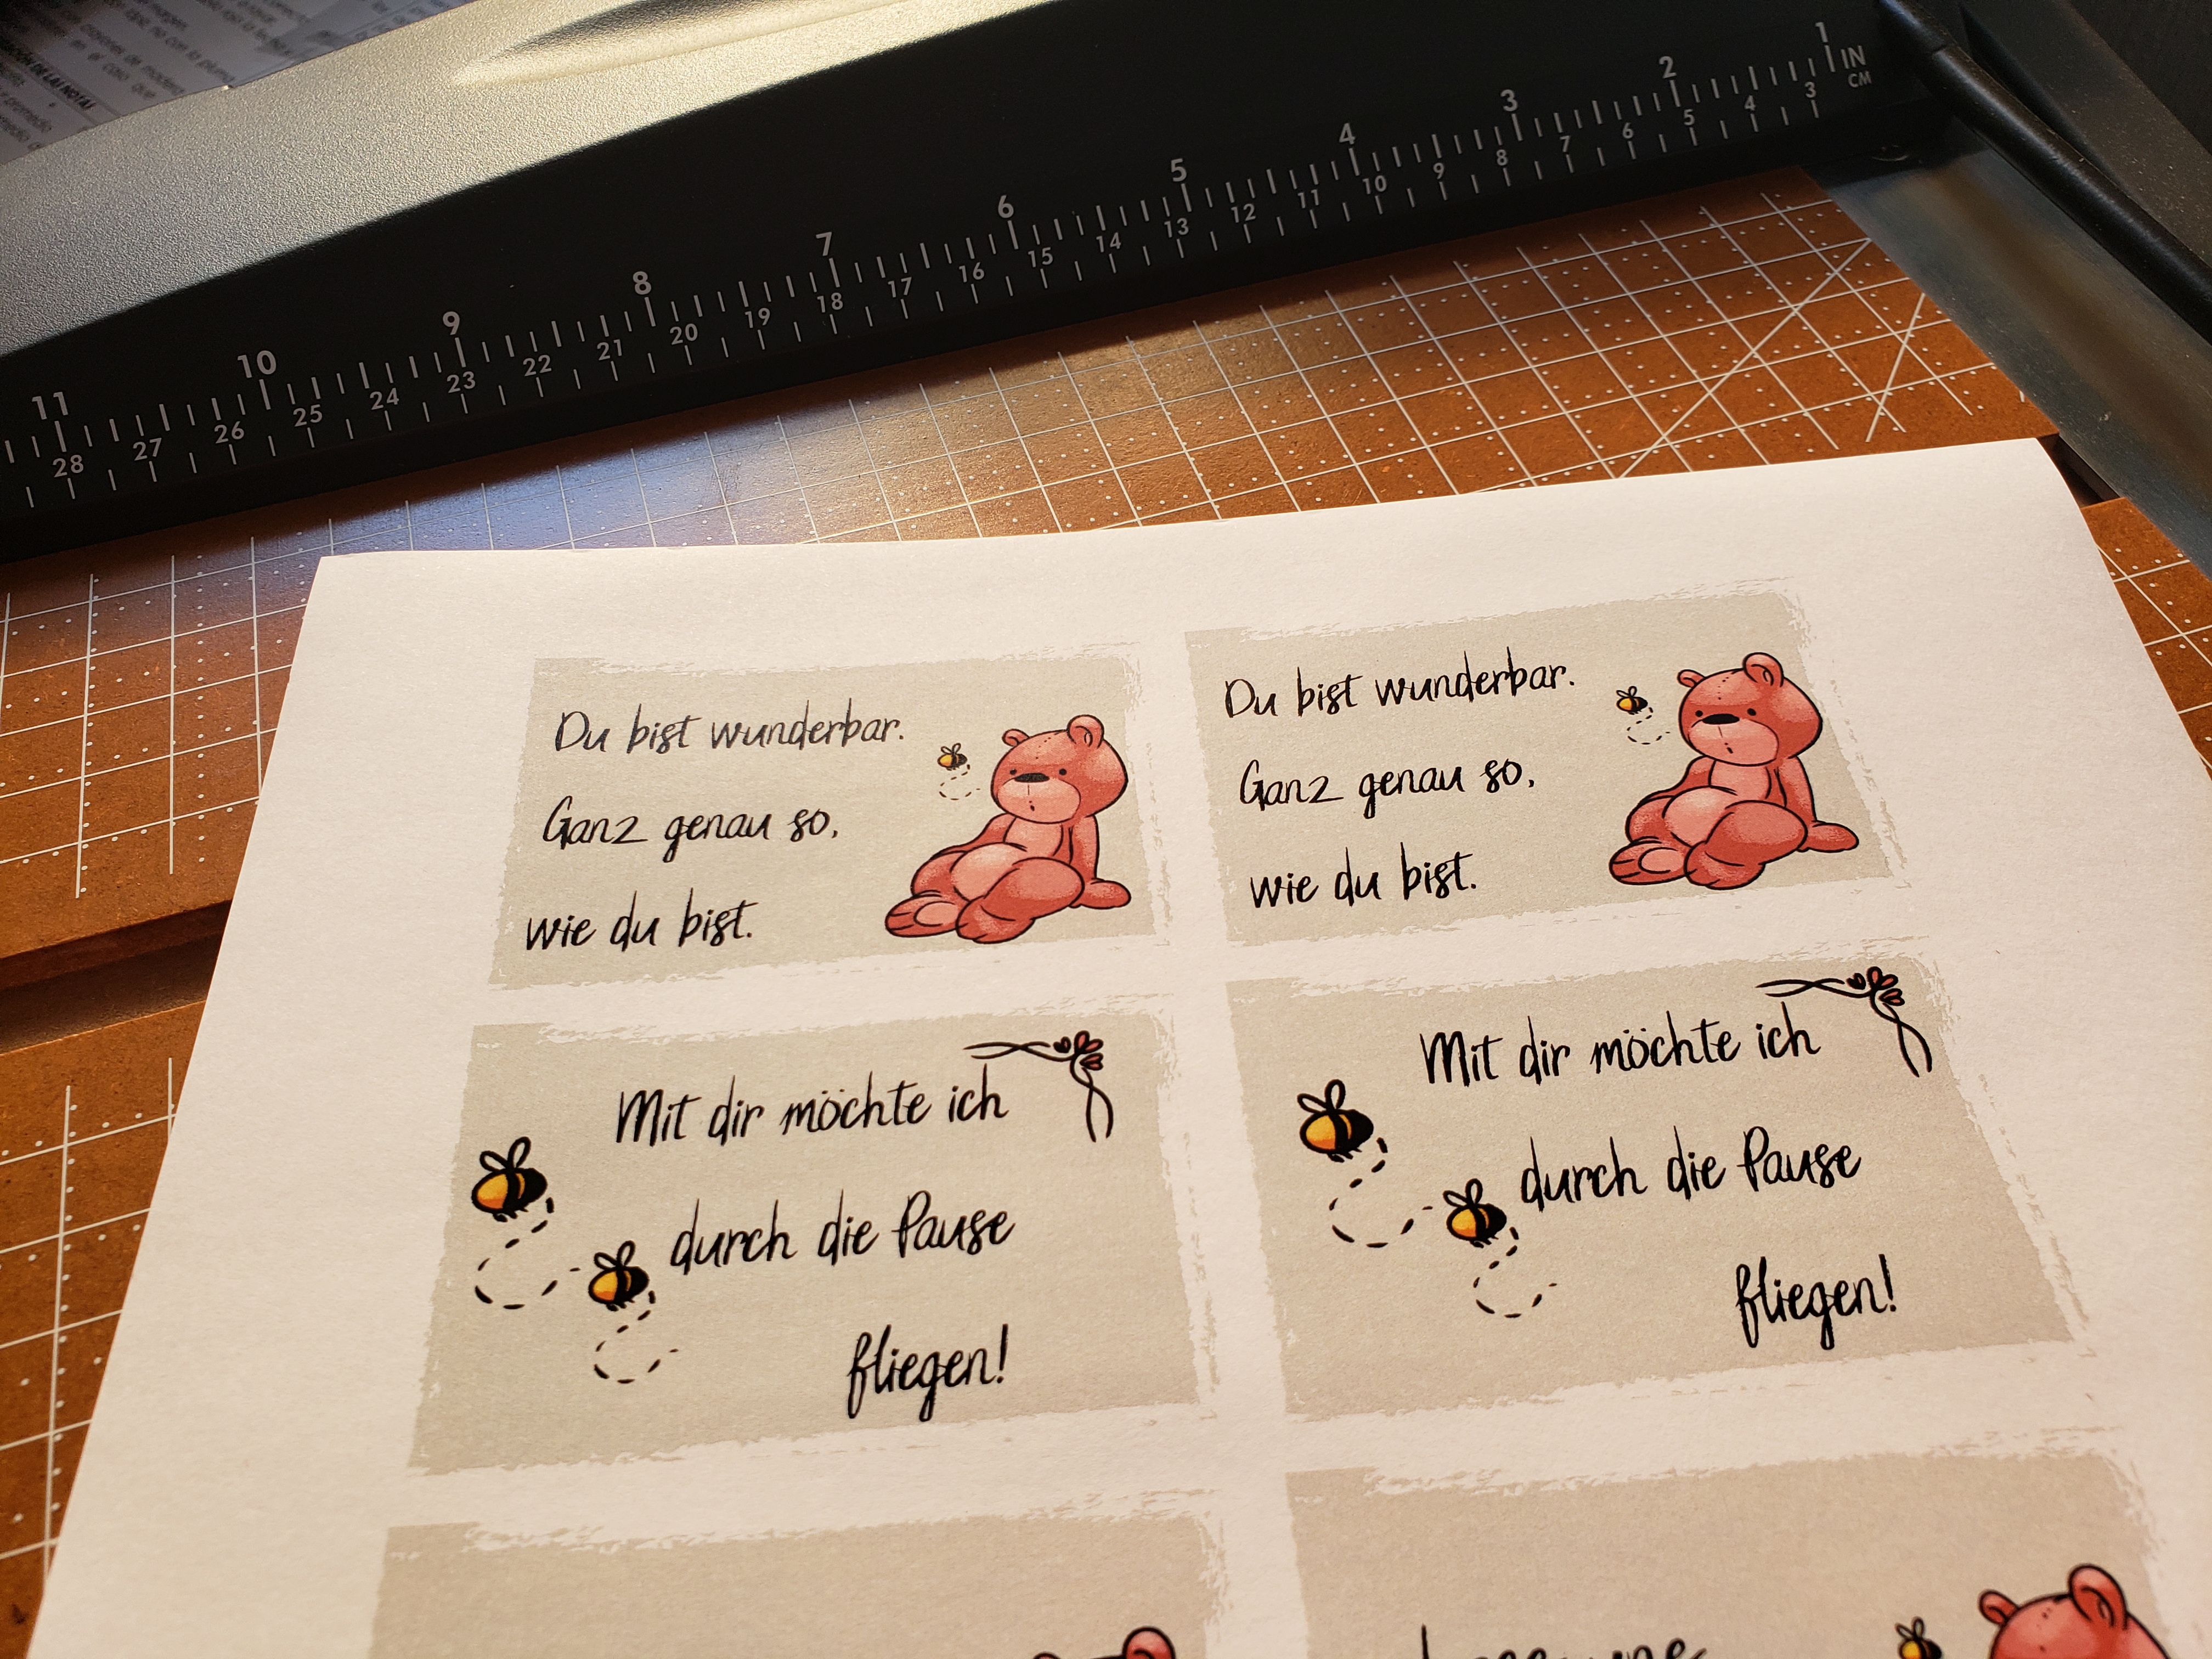 11 10 9 8 7 6 5 4 3 2 1 IN
28 27 26 25 24 23 22 21 20 19 18 17 16 15 14 13 12 11 10 9 8 7 6 5 4 3 CM
Du bist wunderbar.
Ganz genau so,
wie du bist.
Du bist wunderbar.
Ganz genau so,
wie du bist.
Mit dir möchte ich
durch die Pause
fliegen!
Mit dir möchte ich
durch die Pause
fliegen!